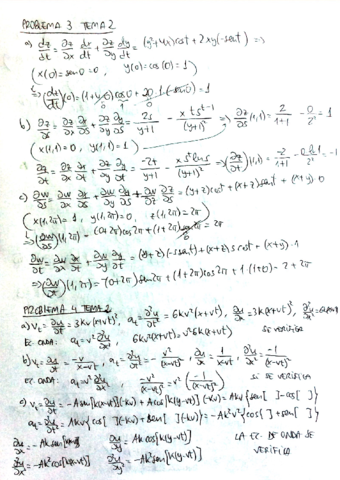 PROBLEMA 3 TEMA 2
a) dz/dt = ∂z/∂x dx/dt + ∂z/∂y dy/dt = (y²+4x) cos t + 2xy (-sen t) ⇒
( x(0) = sen 0 = 0, y(0) = cos (0) = 1 )
↳ (dz/dt)(0) = (1+4·0) cos 0 + 2·0·1 (-sen 0) = 1
b) ∂z/∂s = ∂z/∂x ∂x/∂s + ∂z/∂y ∂y/∂s = 2s/(y+1) - x t s^(t-1)/(y+1)² ⇒ ∂z/∂s (1,1) = 2/(1+1) - 0/2² = 1
( x(1,1) = 0, y(1,1) = 1 )
∂z/∂t = ∂z/∂x ∂x/∂t + ∂z/∂y ∂y/∂t = -2t/(y+1) - x s^t ln s/(y+1)² ⇒ (∂z/∂t)(1,1) = -2/(1+1) - 0·1/2² = -1
c) ∂w/∂s = ∂w/∂x ∂x/∂s + ∂w/∂y ∂y/∂s + ∂w/∂z ∂z/∂s = (y+z) cos t + (x+z) sen t + (x+y) 0
( x(1,2π) = 1, y(1,2π) = 0, z(1,2π) = 2π )
↳ (∂w/∂s)(1,2π) = (0+2π) cos 2π + (1+2π) sen 2π = 2π
∂w/∂t = ∂w/∂x ∂x/∂t + ∂w/∂y ∂y/∂t = (y+z)(-s sen t) + (x+z) s cos t + (x+y)·1
⇒ (∂w/∂t)(1,2π) = -(0+2π) sen 2π + (1+2π) cos 2π + 1 (1+0) = 2+2π
PROBLEMA 4 TEMA 2
a) v_t = ∂u/∂t = 3kv (x+vt)², a_t = ∂²u/∂t² = 6kv² (x+vt), ∂u/∂x = 3k (x+vt)², ∂²u/∂x² =
EC. ONDA: a_t = v² ∂²u/∂x², 6kv² (x+vt) = v² 6k (x+vt) SE VERIFICA
b) v_t = ∂u/∂t = -v/(x-vt), a_t = ∂²u/∂t² = -v²/(x-vt)², ∂u/∂x = 1/(x-vt), ∂²u/∂x² = -1/(x-vt)²
EC. ONDA: a_t = v² ∂²u/∂x² -v²/(x-vt)² = v² (-1/(x-vt)²) SI SE VERIFICA
c) v_t = ∂u/∂t = -A sen [k(x-vt)] (-kv) + A cos [k(y-vt)] (-kv) = Akv { sen [ ] - cos [ ] }
a_t = ∂²u/∂t² = Akv { cos [ ] (-kv) + sen [ ] (-kv) } = -Ak²v² { cos [ ] + sen [ ] }
∂u/∂x = -Ak sen [k(x-vt)] ∂u/∂y = Ak cos [k(y-vt)] LA EC. DE ONDA SE
∂²u/∂x² = -Ak² cos [k(x-vt)] ∂²u/∂y² = -Ak² sen [k(y-vt)] VERIFICA